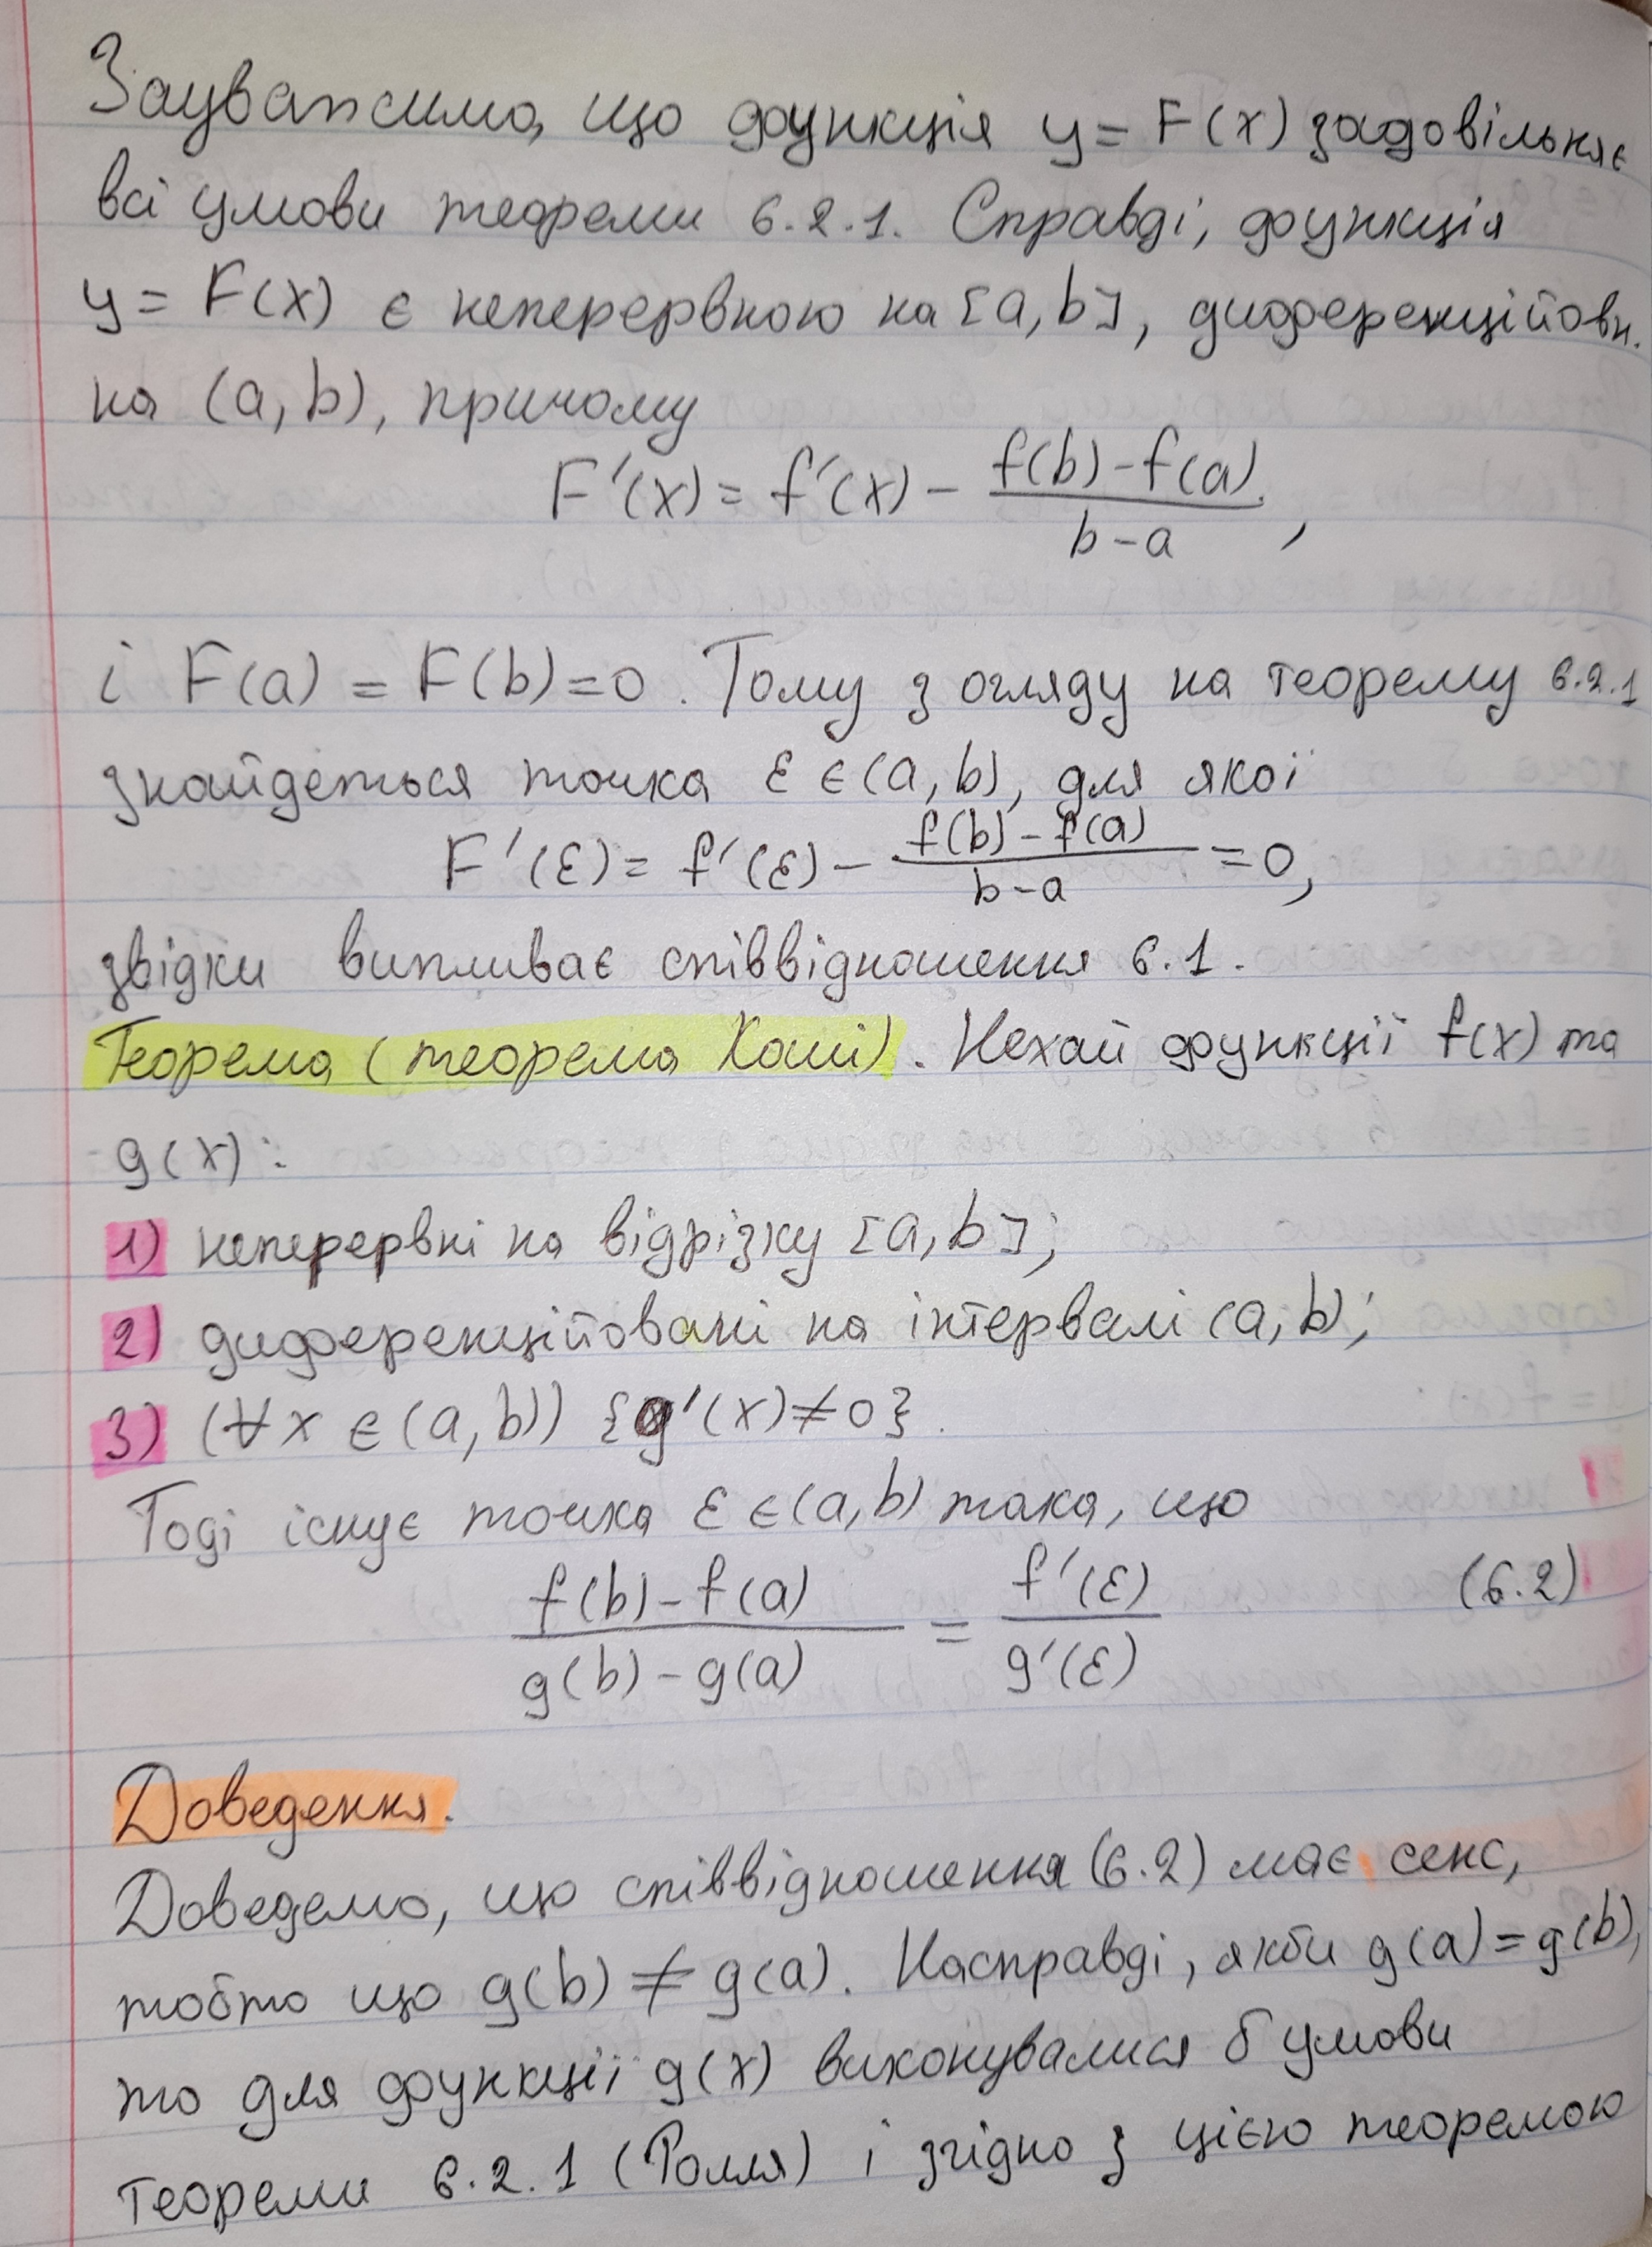 Зауважимо, що функція y = F(x) задовільняє
всі умови теореми 6.2.1. Справді, функція
y = F(x) є неперервною на [a, b], диференційовн.
на (a, b), причому
F'(x) = f'(x) - \frac{f(b) - f(a)}{b - a},
і F(a) = F(b) = 0. Тому з огляду на теорему 6.2.1
знайдеться точка ε ∈ (a, b), для якої
F'(ε) = f'(ε) - \frac{f(b) - f(a)}{b - a} = 0,
звідки випливає співвідношення 6.1.
Теорема (теорема Коші). Нехай функції f(x) та
g(x):
1) неперервні на відрізку [a, b];
2) диференційовані на інтервалі (a, b);
3) (∀x ∈ (a, b)) {g'(x) ≠ 0}.
Тоді існує точка ε ∈ (a, b) така, що
\frac{f(b) - f(a)}{g(b) - g(a)} = \frac{f'(ε)}{g'(ε)} (6.2)
Доведення.
Доведемо, що співвідношення (6.2) має сенс,
тобто що g(b) ≠ g(a). Насправді, якби g(a) = g(b),
то для функції g(x) виконувалися б умови
теореми 6.2.1 (Ролля) і згідно з цією теоремою